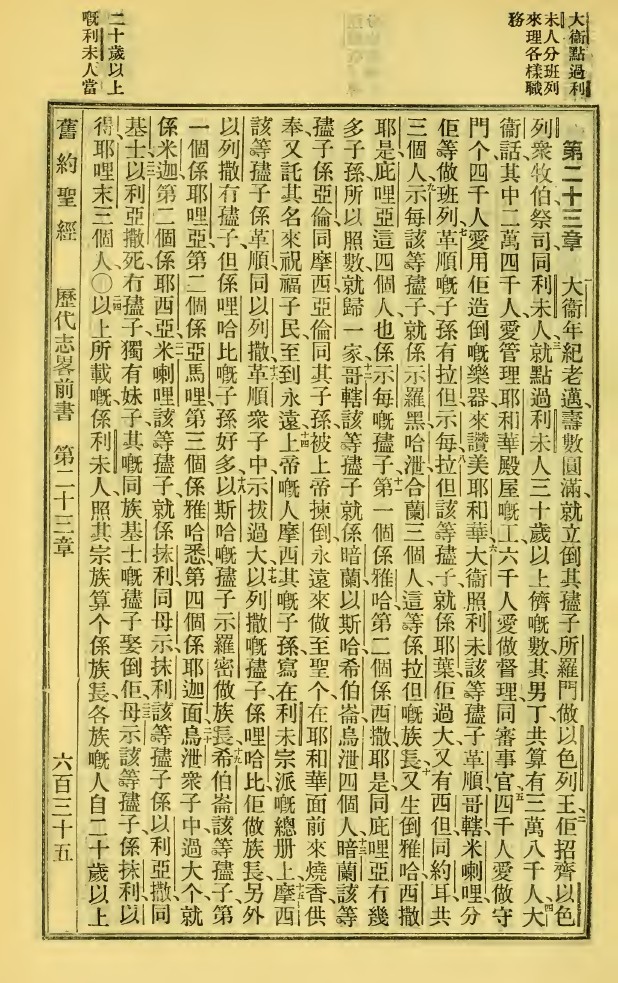 大衛點過利
未人分班列
來理各樣職
務
二十歲以上
嘅利未人當
第二十三章 一大衛年紀老邁壽數圓滿就立倒其孻子所羅門做以色列王二佢招齊以色
列衆牧伯祭司同利未人三就點過利未人三十歲以上儕嘅數其男丁共算有三萬八千人四大
衞話其中二萬四千人愛管理耶和華殿屋嘅工六千人愛做督理同審事官五四千人愛做守
門个四千人愛用佢造倒嘅樂器來讚美耶和華六大衞照利未該等孻子革順哥轄米喇哩分
佢等做班列七革順嘅子孫有拉但示每八拉但該等孻子就係耶葉佢過大又有西但同約耳共
三個人九示每該等孻子就係示羅黑哈泄合蘭三個人這等係拉但嘅族長十又生倒雅哈西撒
耶是庇哩亞這四個人也係示每嘅孻子十一第一個係雅哈第二個係西撒耶是同庇哩亞有幾
多子孫所以照數就歸一家十二哥轄該等孻子就係暗蘭以斯哈希伯崙烏泄四個人十三暗蘭該等
孻子係亞倫同摩西亞倫同其子孫被上帝揀倒永遠來做至聖个在耶和華面前來燒香供
奉又託其名來祝福子民至到永遠十四上帝嘅人摩西其嘅子孫寫在利未宗派嘅總册上十五摩西
該等孻子係革順同以列撒十六革順衆子中示拔過大十七以列撒嘅孻子係哩哈比佢做族長另外
以列撒冇孻子但係哩哈比嘅子孫好多十八以斯哈嘅孻子示羅密做族長十九希伯崙該等孻子第
一個係耶哩亞第二個係亞馬哩第三個係雅哈悉第四個係耶迦面二十烏泄衆子中過大个就
係米迦第二個係耶西亞二一米喇哩該等孻子就係抹利同母示抹利該等孻子係以利亞撒同
基士二二以利亞撒死冇孻子獨有妹子其嘅同族基士嘅孻子娶倒佢二三母示該等孻子係抹利以
得耶哩末三個人〇二四以上所載嘅係利未人照其宗族算个係族長各族嘅人自二十歲以上
舊約聖經 歷代志畧前書 第二十三章 六百三十五